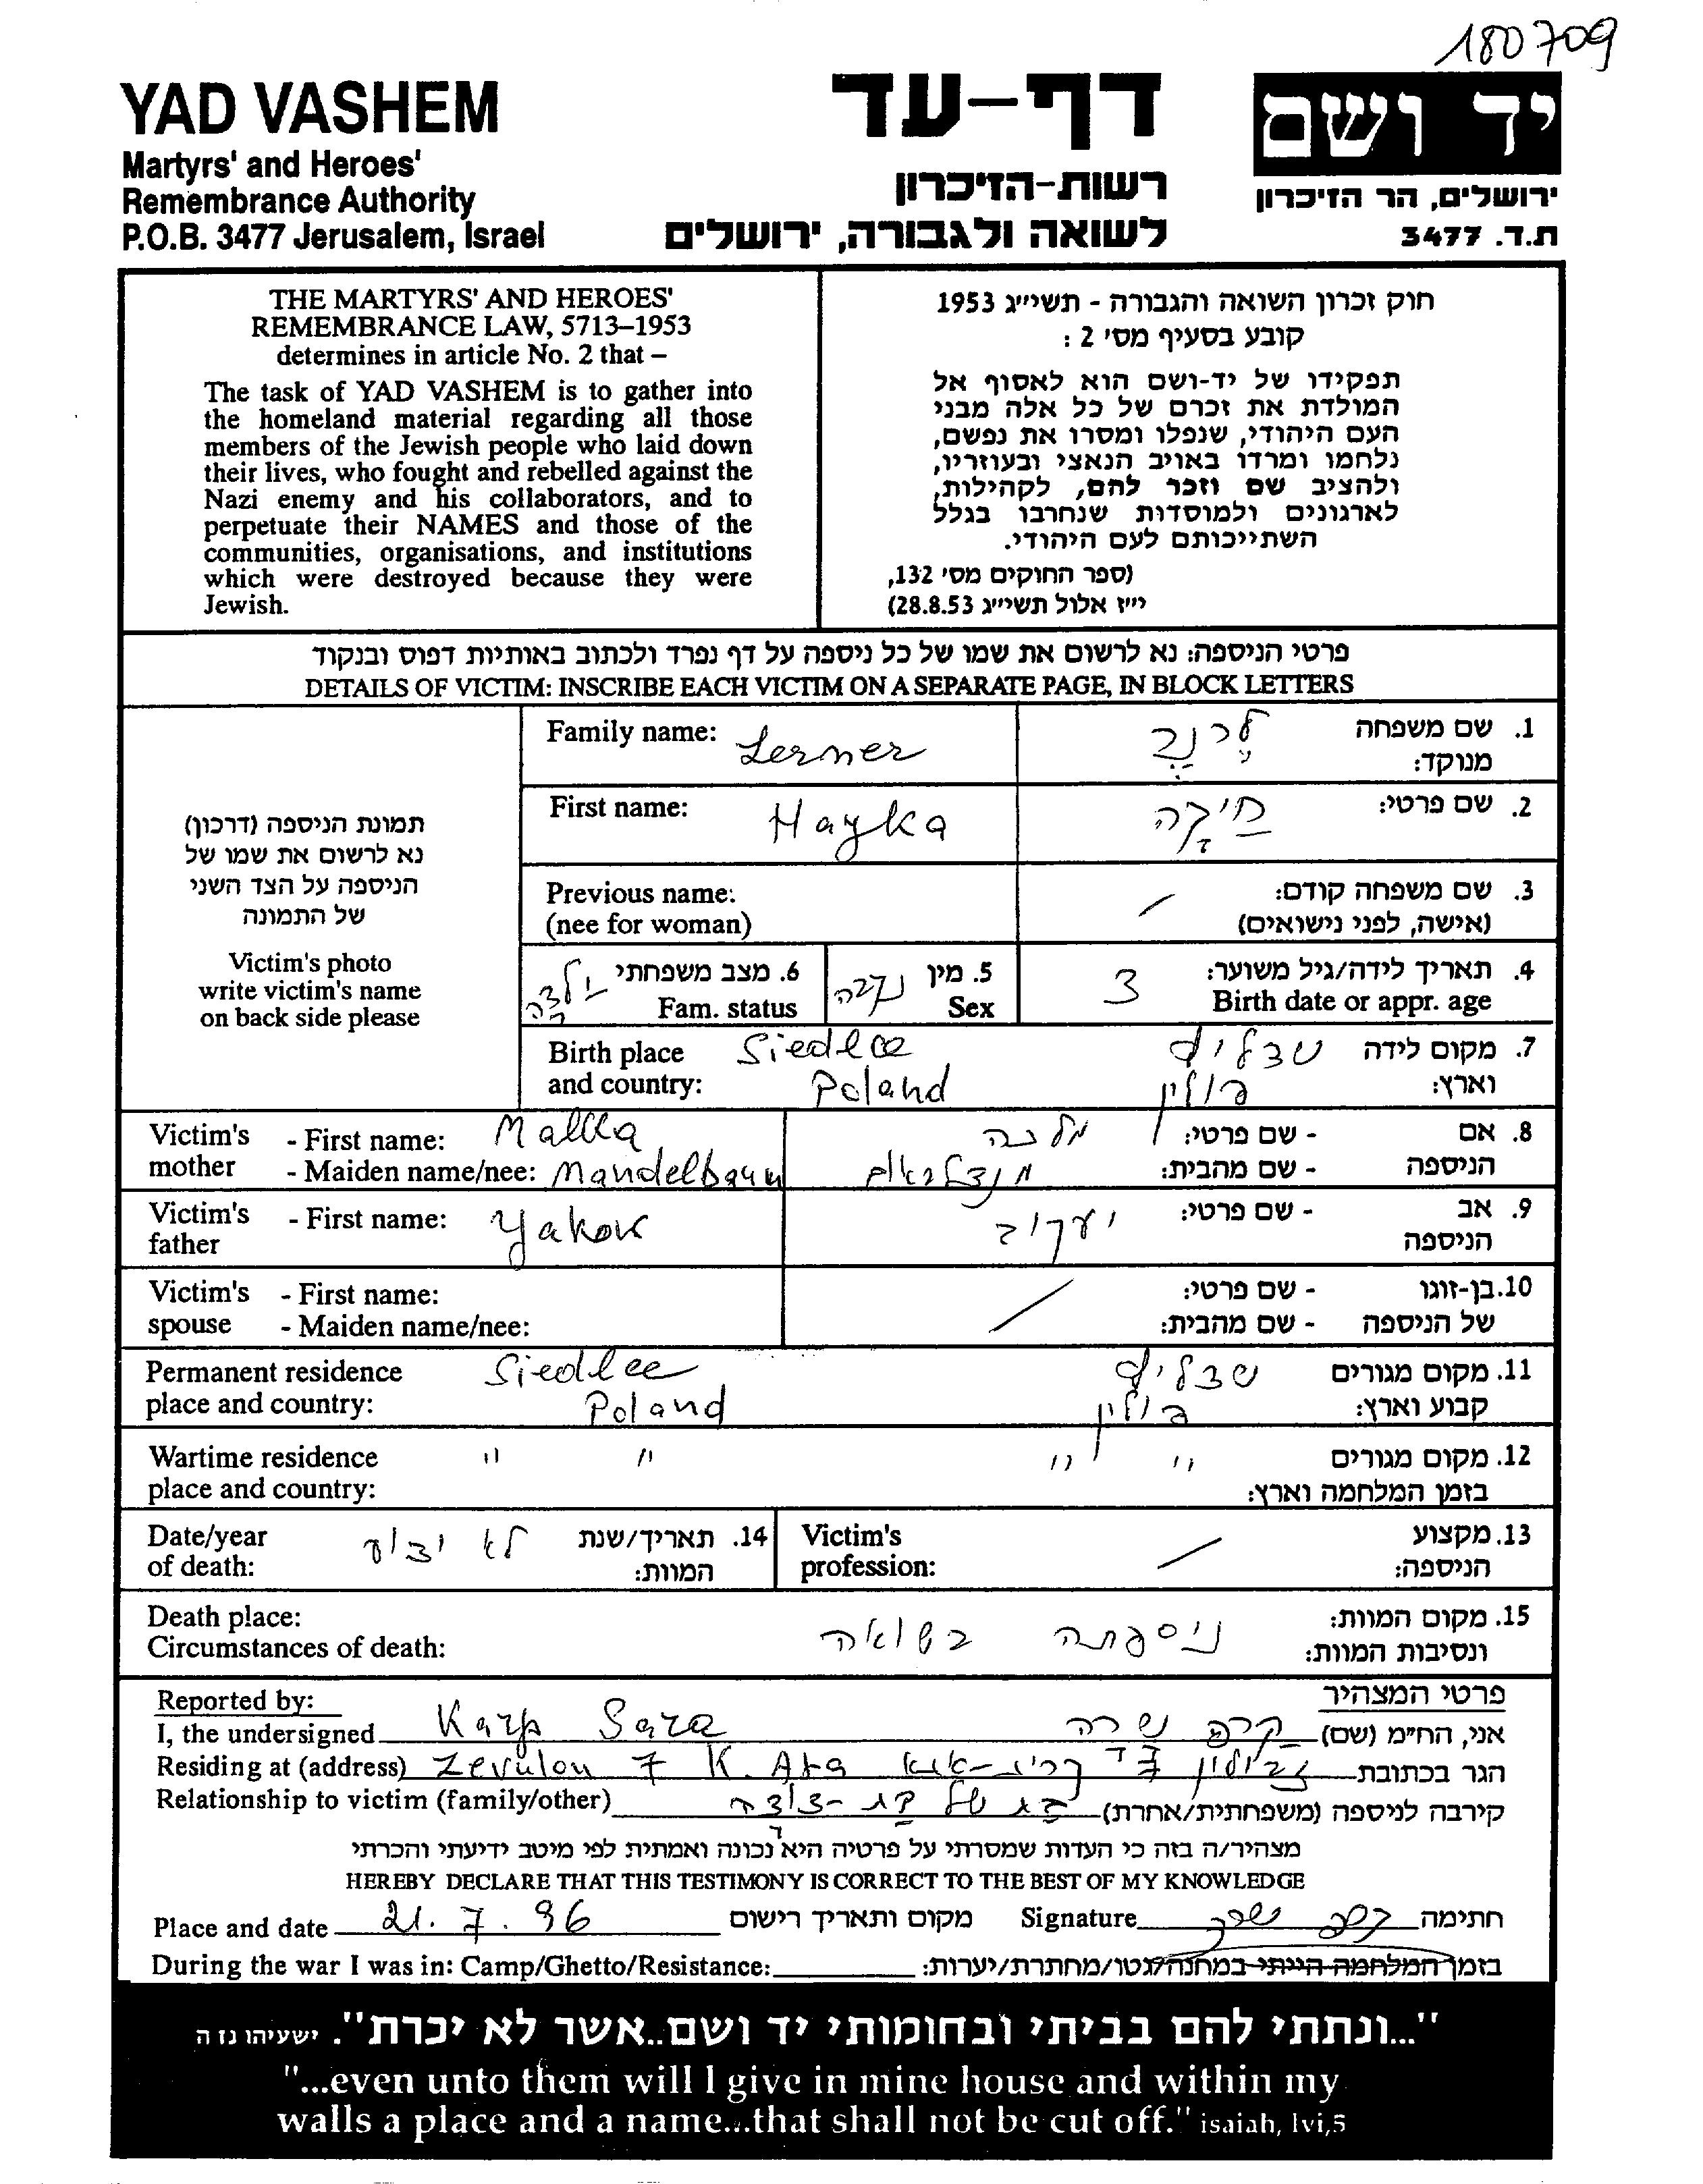 180709
YAD VASHEM
Martyrs' and Heroes'
Remembrance Authority
P.O.B. 3477 Jerusalem, Israel
דף-עד
רשות-הזיכרון
לשואה ולגבורה, ירושלים
יד ושם
ירושלים, הר הזיכרון
ת.ד. 3477
THE MARTYRS' AND HEROES'
REMEMBRANCE LAW, 5713–1953
determines in article No. 2 that –
The task of YAD VASHEM is to gather into
the homeland material regarding all those
members of the Jewish people who laid down
their lives, who fought and rebelled against the
Nazi enemy and his collaborators, and to
perpetuate their NAMES and those of the
communities, organisations, and institutions
which were destroyed because they were
Jewish.
חוק זכרון השואה והגבורה - תשי״ג 1953
קובע בסעיף מס' 2 :
תפקידו של יד-ושם הוא לאסוף אל
המולדת את זכרם של כל אלה מבני
העם היהודי, שנפלו ומסרו את נפשם,
נלחמו ומרדו באויב הנאצי ובעוזריו,
ולהציב שם וזכר להם, לקהילות,
לארגונים ולמוסדות שנחרבו בגלל
השתייכותם לעם היהודי.
(ספר החוקים מס' 132,
י״ז אלול תשי״ג 28.8.53)
פרטי הניספה: נא לרשום את שמו של כל ניספה על דף נפרד ולכתוב באותיות דפוס ובנקוד
DETAILS OF VICTIM: INSCRIBE EACH VICTIM ON A SEPARATE PAGE, IN BLOCK LETTERS
תמונת הניספה (דרכון)
נא לרשום את שמו של
הניספה על הצד השני
של התמונה
Victim's photo
write victim's name
on back side please
Family name: Lerner לרנר 1. שם משפחה
מנוקד:
First name: Hayka חיקה 2. שם פרטי:
Previous name: 3. שם משפחה קודם:
(nee for woman) (אישה, לפני נישואים)
ילדה 6. מצב משפחתי נקבה 5. מין 3 4. תאריך לידה/גיל משוער:
Fam. status Sex Birth date or appr. age
Birth place Siedlce שדליץ 7. מקום לידה
and country: Poland פולין וארץ:
Victim's - First name: Malka מלכה - שם פרטי: 8. אם
mother - Maiden name/nee: Mandelbaum מנדלבאום - שם מהבית: הניספה
Victim's - First name: Yakov יעקוב - שם פרטי: 9. אב
father הניספה
Victim's - First name: - שם פרטי: 10. בן-זוגו
spouse - Maiden name/nee: - שם מהבית: של הניספה
Permanent residence Siedlce שדליץ 11. מקום מגורים
place and country: Poland פולין קבוע וארץ:
Wartime residence " " " " 12. מקום מגורים
place and country: בזמן המלחמה וארץ:
Date/year לא ידוע 14. תאריך/שנת Victim's 13. מקצוע
of death: המוות: profession: הניספה:
Death place: 15. מקום המוות:
Circumstances of death: ניספתה בשואה ונסיבות המוות:
Reported by: פרטי המצהיר
I, the undersigned Karp Sara קרפ שרה אני, החי״מ (שם)
Residing at (address) Zevulon 7 K. Ata זבולון 7 קרית-אתא הגר בכתובת
Relationship to victim (family/other) בת של בת-דודה קירבה לניספה (משפחתית/אחרת)
מצהיר/ה בזה כי העדות שמסרתי על פרטיה היא נכונה ואמתית לפי מיטב ידיעתי והכרתי
HEREBY DECLARE THAT THIS TESTIMONY IS CORRECT TO THE BEST OF MY KNOWLEDGE
Place and date 21.7.96 מקום ותאריך רישום Signature קרפ שרה חתימה
During the war I was in: Camp/Ghetto/Resistance: בזמן המלחמה הייתי במחנה/גטו/מחתרת/יערות:
"...ונתתי להם בביתי ובחומותי יד ושם..אשר לא יכרת". ישעיהו נו ה
"...even unto them will I give in mine house and within my
walls a place and a name...that shall not be cut off." isaiah, lvi,5